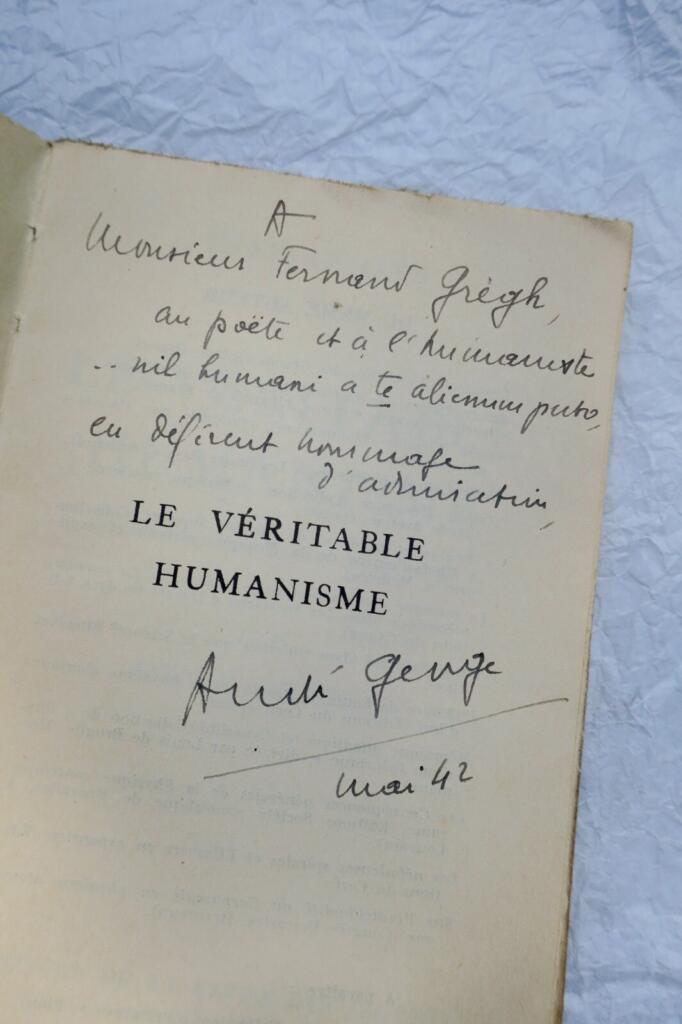 A
Monsieur Fernand Gregh,
au poëte et à l'humaniste
.. nil humani a te alienum puto,
en déférent hommage
d'admiration,
LE VÉRITABLE
HUMANISME
André George
mai 42